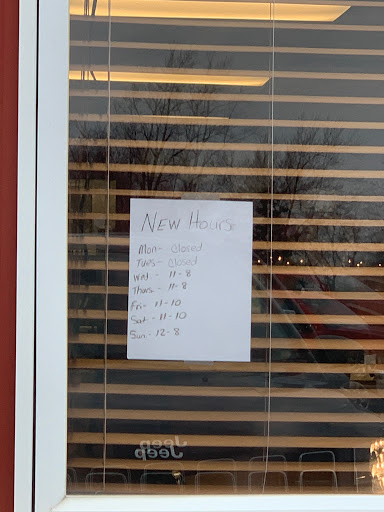 New Hours
Mon- Closed
Tues- Closed
Wed - 11-8
Thurs - 11-8
Fri- 11-10
Sat - 11-10
Sun - 12-8
Jeep
Jeep